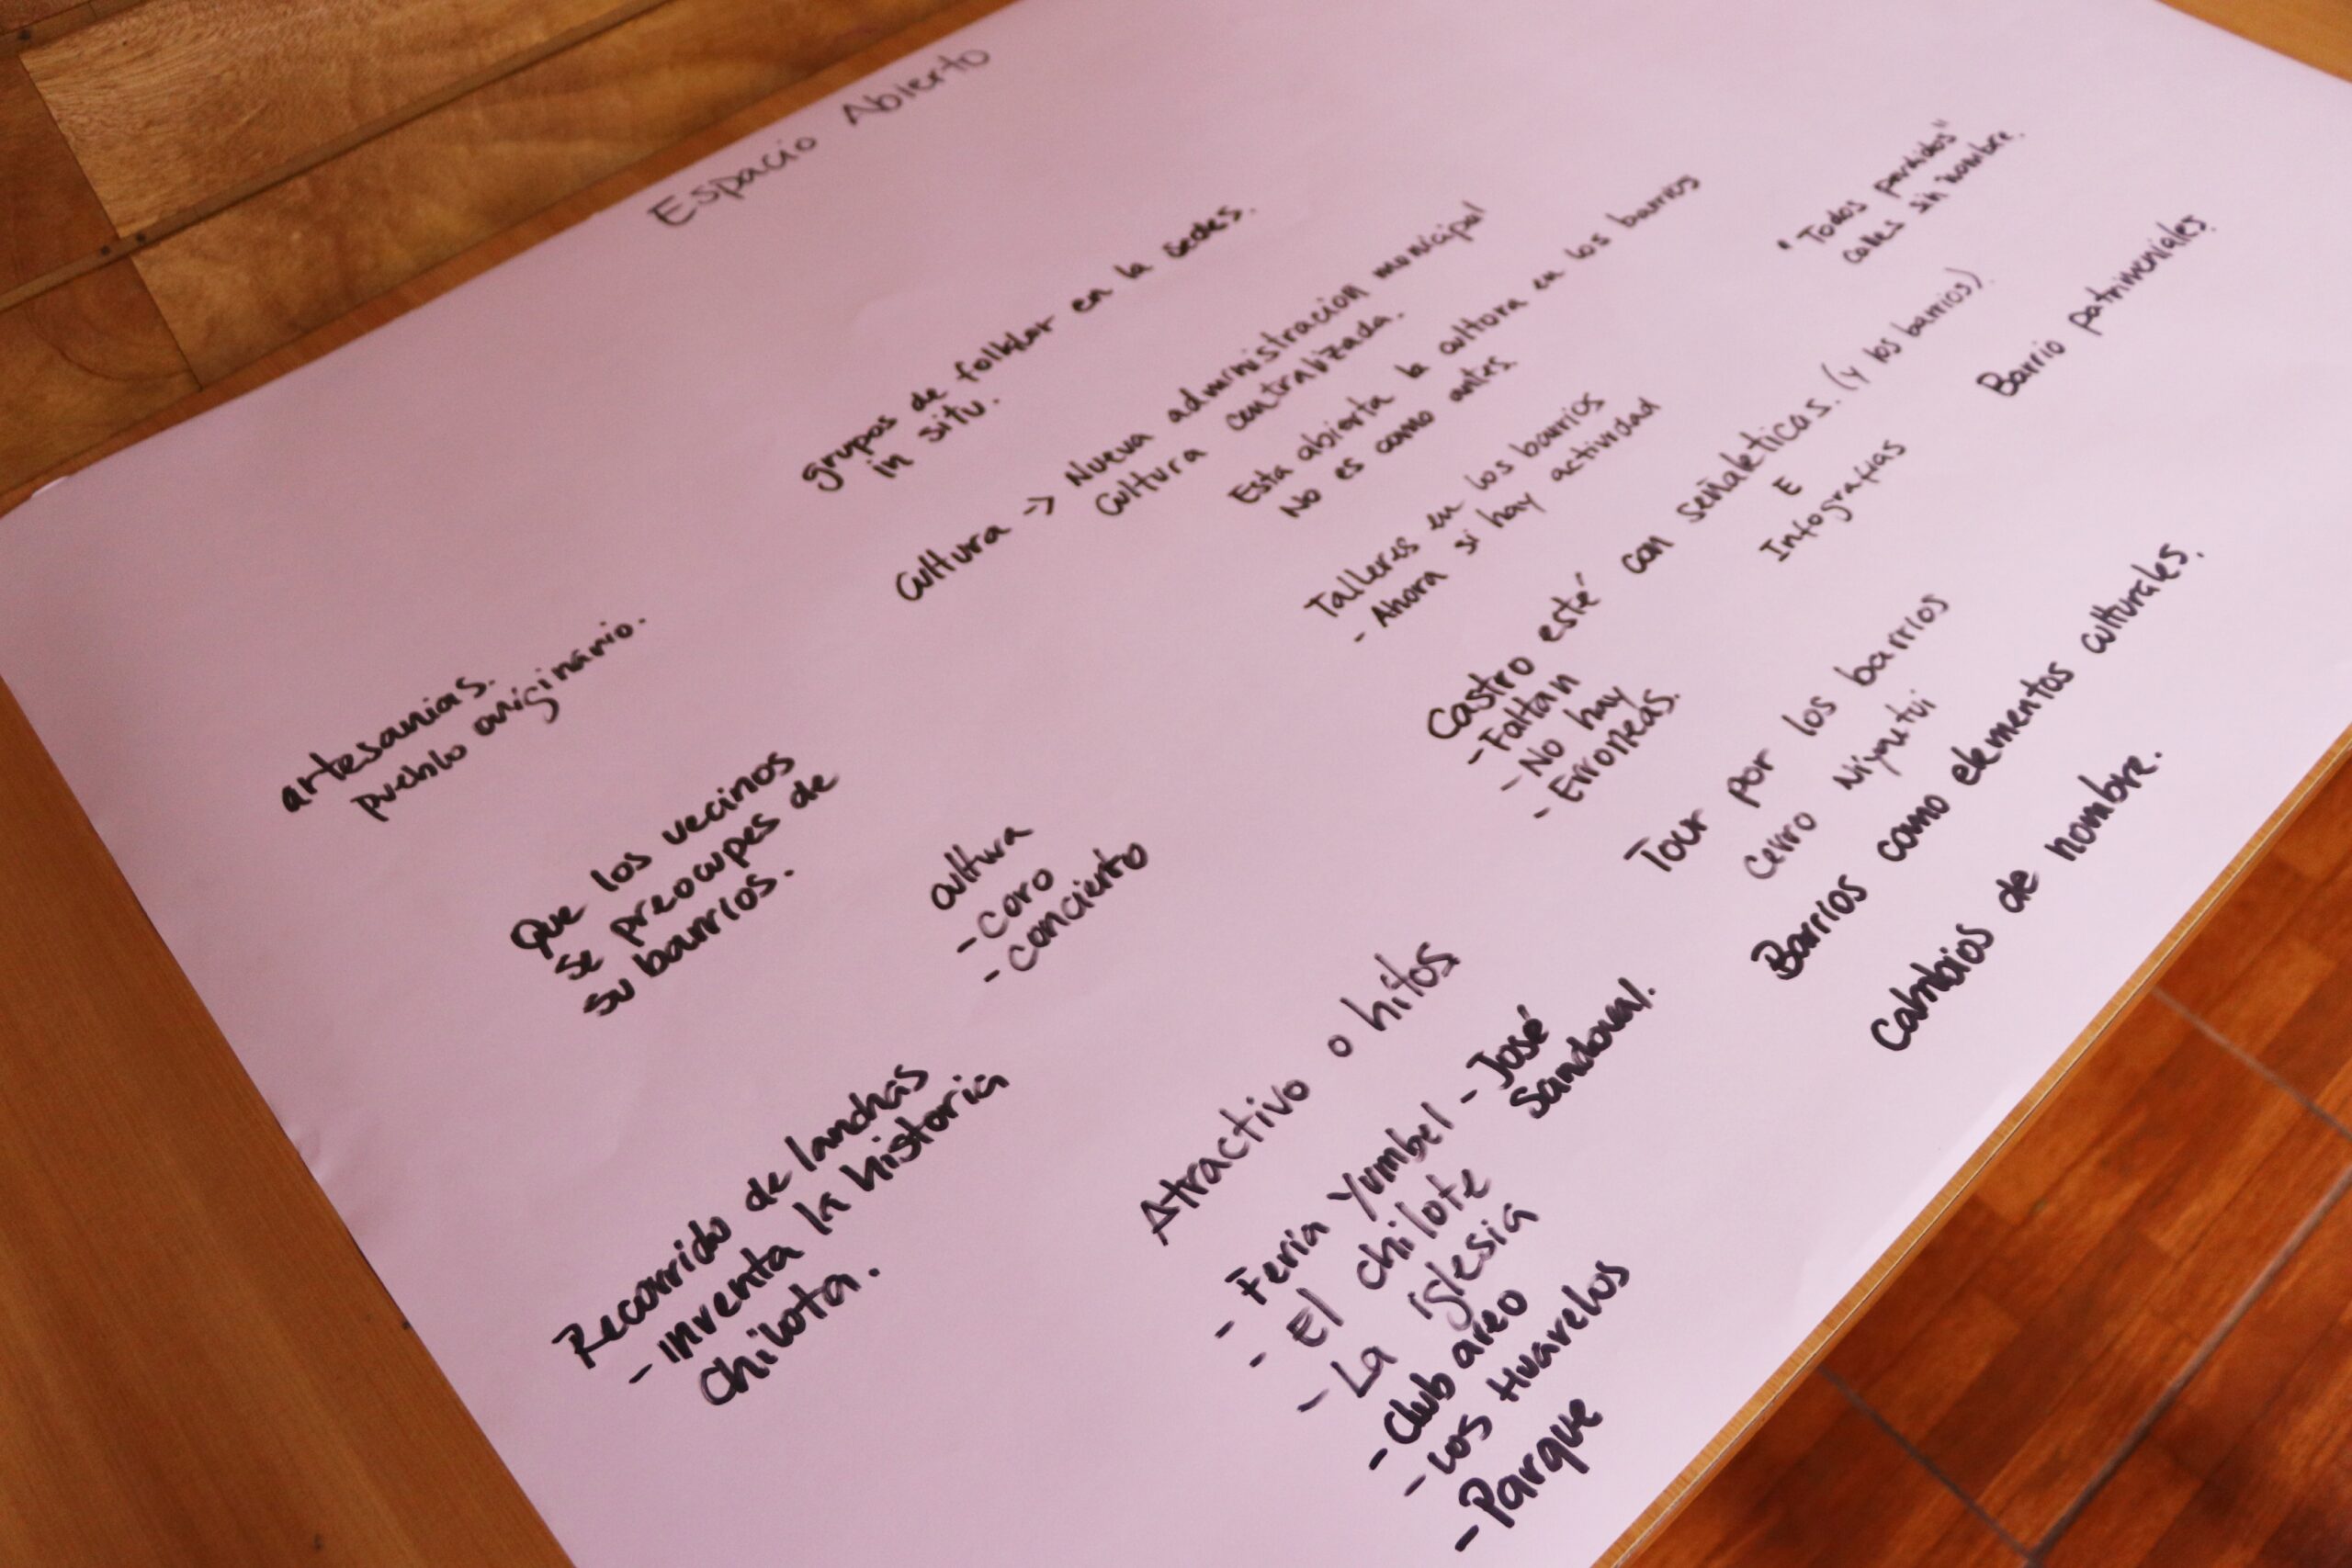 Espacio Abierto
grupos de folklor en la sedes.
in situ.
Cultura -> Nueva administración municipal
Cultura centralizada.
Esta abierta la cultura en los barrios
No es como antes.
Talleres en los barrios
- Ahora si hay actividad
"Todos perdidos"
calles sin nombre.
Castro esté con señaleticas. (y los barrios)
E
Infografias
- Faltan
- No hay
- Erroneas.
Barrio patrimoniales.
Tour por los barrios
cerro
Barrios como elementos culturales.
Cambios de nombre.
artesanias.
pueblo originario.
Que los vecinos
se preocupes de
su barrios.
cultura
- coro
- concierto
Recorrido de lanchas
- inventa la historia
Chilota.
Atractivo o hitos
- Feria Yumbel - José
Sandoval.
- El chilote
- La iglesia
- Club aéreo
- Los Huarelos
- Parque